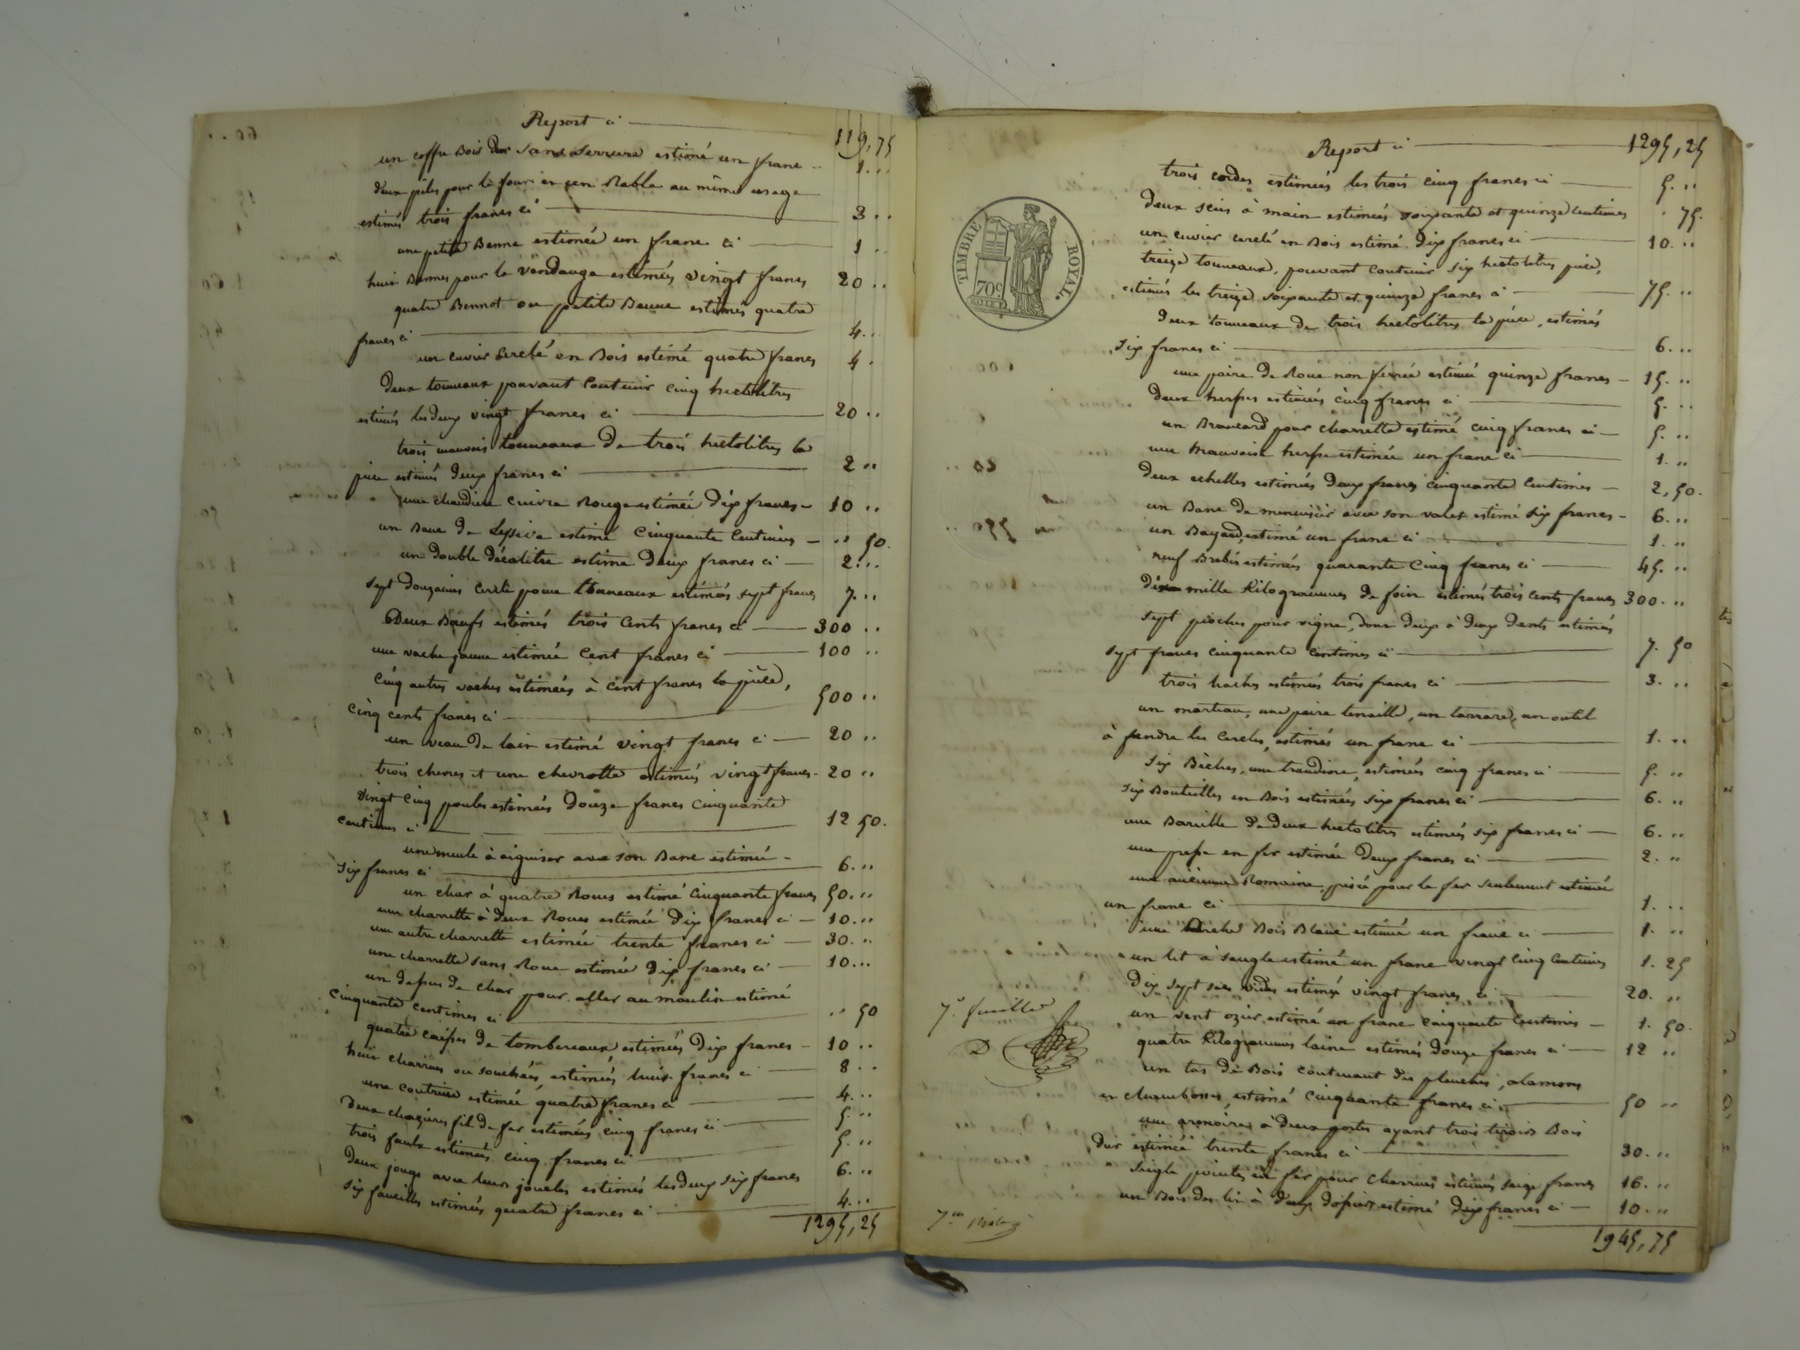 Report ci 119,75
un coffre Bois dur sans serrure estimé un franc 1...
deux pèles pour le four et un Rable au même usage
estimés trois francs ci 3..
une petite Benne estimée un franc ci 1..
huit Bennes pour la vendange estimées vingt francs 20..
quatre Bennot ou petite Benne estimés quatre
francs ci 4..
un cuvier Cerclé en Bois estimé quatre francs 4.
Deux tonneaux pouvant Contenir Cinq hectolitres
estimés les deux vingt francs ci 20..
trois mauvais tonneaux de trois hectolitres la
pièce estimés deux francs ci 2..
une chaudière cuivre Rouge estimée dix francs 10..
un Banc de Lessive estimé Cinquante Centimes .. 50.
un double décalitre estimé deux francs ci 2...
sept douzaines cercle pour tonneaux estimés sept francs 7...
Deux Bœufs estimés trois Cents francs ci 300..
une vache jaune estimée Cent francs ci 100..
Cinq autres vaches estimées à Cent francs la pièce,
Cinq cents francs ci 500..
un veau de lait estimé vingt francs ci 20..
trois chevres et une chevrotte estimés vingt francs 20..
vingt Cinq poules estimées douze francs cinquante
centimes ci 12 50.
une meule à aiguiser avec son Banc estimée
six francs ci 6...
un char à quatre Roues estimé Cinquante francs 50...
une charrette à deux Roues estimée dix francs ci 10...
une autre charrette estimée trente francs ci 30..
une charrette sans Roue estimée dix francs ci 10...
un dessus de char pour aller au moulin estimé
Cinquante Centimes ci .. 50
quatre caisses de tombereaux estimées dix francs 10..
huit charrues ou estimés huit francs ci 8..
une estimée quatre francs ci 4...
Deux fil de fer estimées cinq francs ci 5...
trois faulx estimées cinq francs ci 5...
Deux jougs avec leurs estimés les deux six francs 6...
six faucilles estimées quatre francs ci 4...
1295,25
Report ci 1295,25
TIMBRE ROYAL.
70c
trois cordes estimées les trois cinq francs ci 5..
Deux scies à main estimées soixante et quinze Centimes . 75.
un cuvier cerclé en Bois estimé dix francs ci 10...
treize tonneaux, pouvant Contenir six hectolitres pièce,
estimés les treize, soixante et quinze francs ci 75...
Deux tonneaux de trois hectolitres la pièce, estimés
six francs ci 6...
une paire de Roue non ferrée estimée quinze francs 15...
Deux herses estimées cinq francs ci 5...
un Brancard pour charrette estimé cinq francs ci 5...
une Mauvaise herse estimée un franc ci 1...
Deux echelles estimées deux francs Cinquante Centimes 2,50.
un Banc de menuisier avec son valet estimé six francs 6...
un Bayard, estimé un franc ci 1...
neuf Brebis estimées quarante Cinq francs ci 45...
mille Kilogrammes de foin estimés trois cents francs 300...
sept pioches pour vigne, dont deux à deux dents estimées
sept francs cinquante Centimes ci 7. 50
trois haches estimées trois francs ci 3...
un marteau, une paire tenaille, un tarrare, un outil
à fendre les Cercles, estimés un franc ci 1...
six Bèches, une estimées cinq francs ci 5...
six Bouteilles en Bois estimées six francs ci 6...
une Barille de deux hectolitres estimée six francs ci 6...
une presse en fer estimée deux francs ci 2...
une ancienne Romaine, prisée pour le fer seulement estimée
un franc ci 1...
une Bois Blanc estimée un franc ci 1...
un lit à sangle estimé un franc vingt Cinq Centimes 1. 25
dix sept sacs vides estimés vingt francs, ci 20...
7e. feuillet
un vent estimé un franc cinquante Centimes 1. 50.
D
quatre Kilogrammes laine estimés douze francs ci 12..
un tas de Bois Contenant des planches,
en estimé cinquante francs ci 50..
une armoire à deux portes ayant trois tiroirs Bois
dur estimée trente francs ci 30...
pointes en fer pour charrues estimées seize francs 16...
un Bois de lit à deux dossiers estimé dix francs ci 10...
1945,75